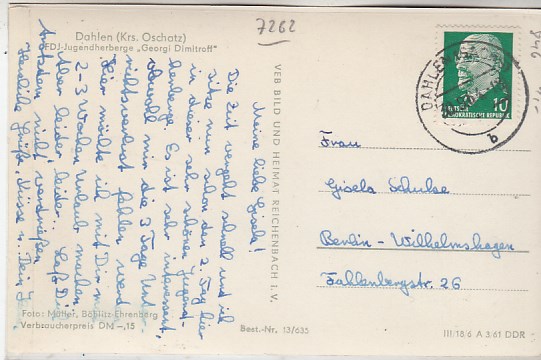 7262
Dahlen (Krs. Oschatz)
FDJ-Jugendherberge „Georgi Dimitroff"
Meine liebe Gisela!
Die Zeit vergeht schnell und ich
sitze nun schon den 2. Tag hier
in dieser sehr schönen Jugend-
herberge. Es ist sehr interessant,
obwohl mir die 3 Tage Unter-
richtsverlust fehlen werden.
Hier möchte ich mit Dir mal
2-3 Wochen Urlaub machen.
Aber leider, leider!! Laß Dich
trotzdem nicht verdrießen
Herzliche Grüße, Küsse v. Dein
Foto: Müller, Bößlitz-Ehrenberg
Verbraucherpreis DM -,15
VEB BILD UND HEIMAT REICHENBACH I. V.
Best.-Nr. 13/635
DAHLEN
b
10
DEUTSCHE
DEMOKRATISCHE REPUBLIK
Frau
Gisela Schulse
Berlin - Wilhelmshagen
Fahlenbergstr. 26
III/18/6 A 3/61 DDR